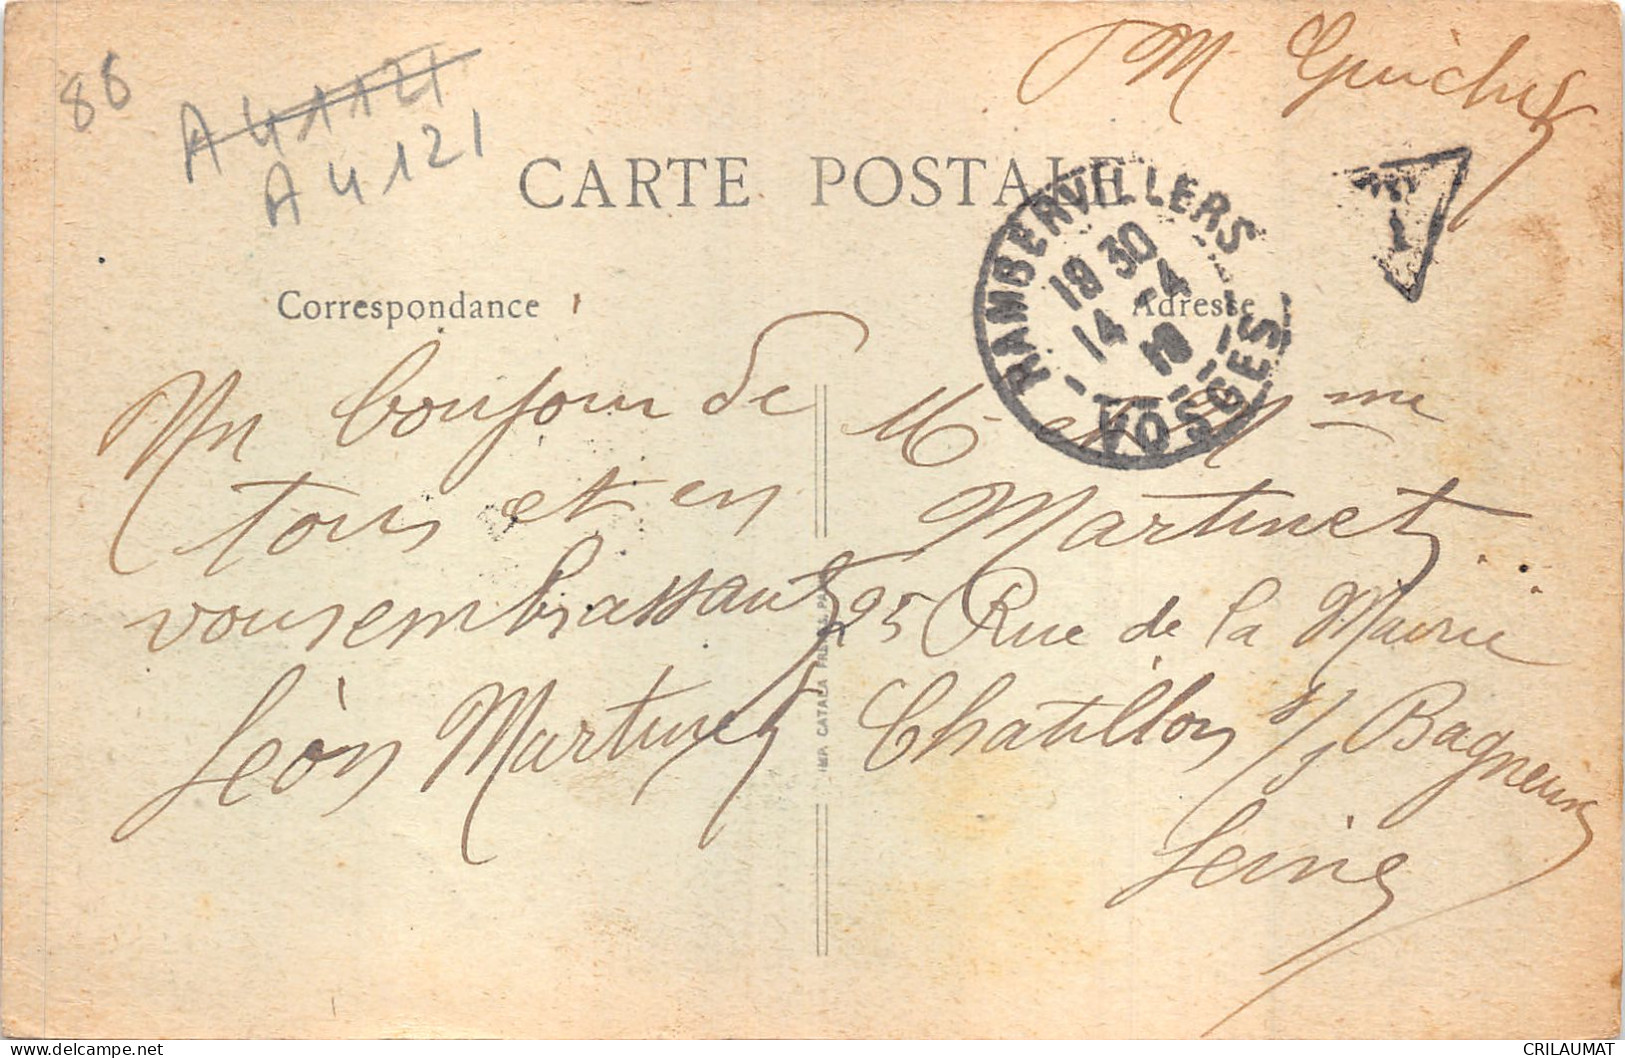 86
A 41121
A 4121
M Guichet
CARTE POSTALE
RAMBERVILLERS
19 30
14 -4
19
VOSGES
T
Correspondance
Adresse
Un bonjour de
tous et en
vous embrassant
Léon Martinet
M et Mme
Martinet
25 Rue de la Mairie
Chatillon s/s Bagneux
Seine
IMP. CATALA FRERES PARIS
delcampe.net
CRILAUMAT